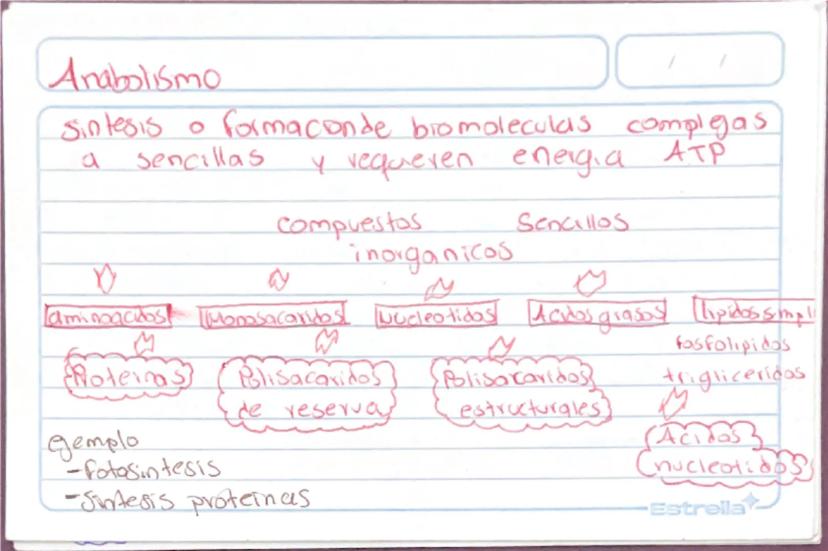 Anabolismo
/ /
sintesis o formaconde biomoleculas complejas
a sencillas y requieren energia ATP
compuestos sencillos
inorganicos
aminoacidos Monosacaridos Nucleotidos Acidos grasos lipidos simpl
fosfolipidos
Proteinas Polisacaridos Polisacaridos trigliceridos
de reserva estructurales
ejemplo Acidos
-fotosintesis nucleotidos
-sintesis proteinas
Estrella